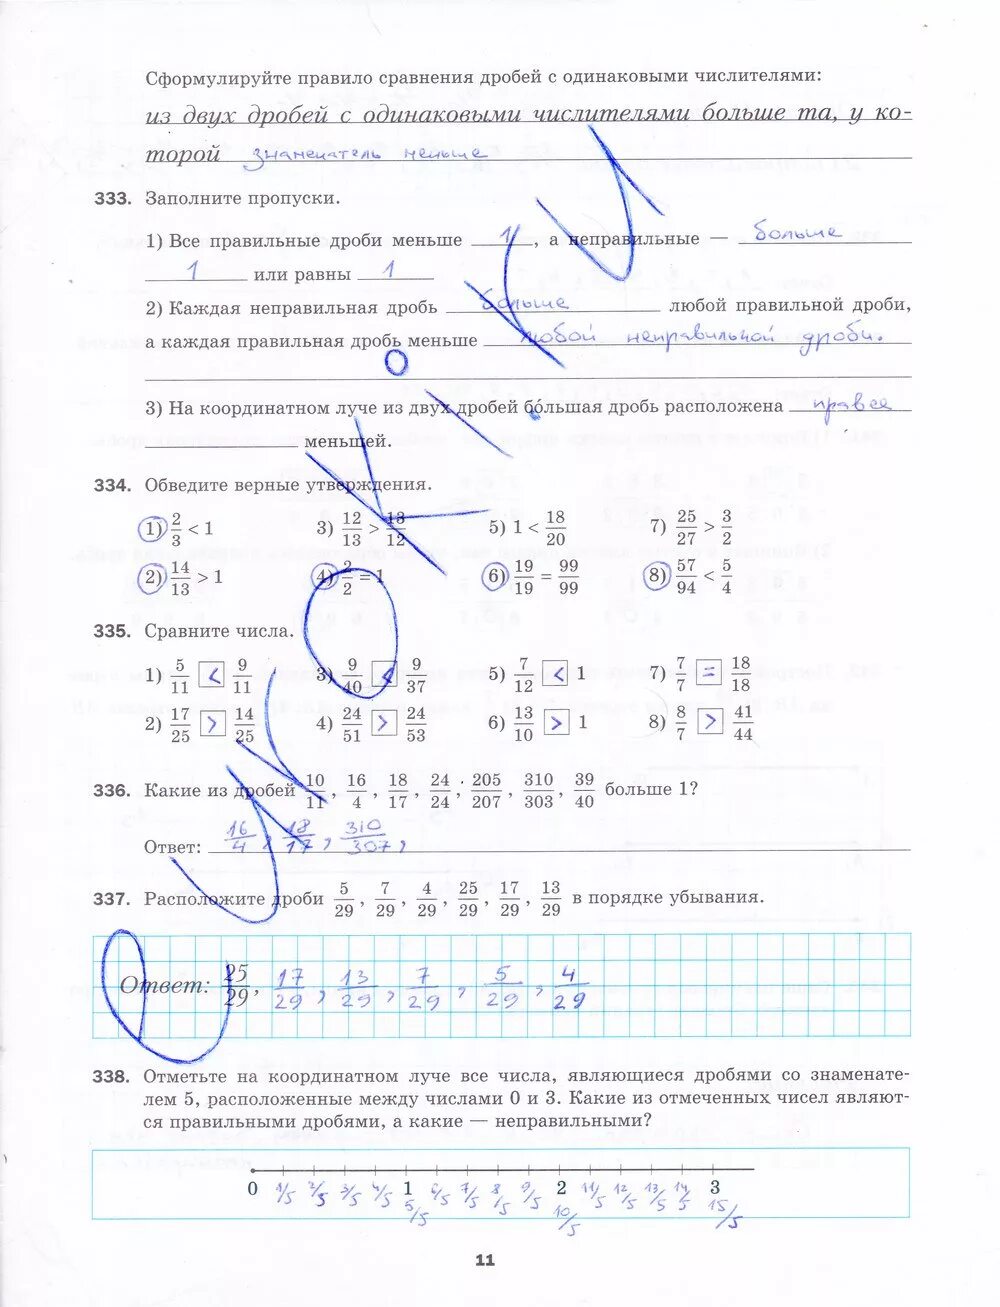 Сформулируйте правило сравнения дробей с одинаковыми числителями:
из двух дробей с одинаковыми числителями больше та, у ко-
торой знаменатель меньше
333. Заполните пропуски.
1) Все правильные дроби меньше 1, а неправильные — больше
1 или равны 1
2) Каждая неправильная дробь больше любой правильной дроби,
а каждая правильная дробь меньше любой неправильной дроби.
3) На координатном луче из двух дробей бо́льшая дробь расположена правее
меньшей.
334. Обведите верные утверждения.
1) 2/3 < 1 3) 12/13 > 13/12 5) 1 < 18/20 7) 25/27 > 3/2
2) 14/13 > 1 4) 2/2 = 1 6) 19/19 = 99/99 8) 57/94 < 5/4
335. Сравните числа.
1) 5/11 < 9/11 3) 9/40 < 9/37 5) 7/12 < 1 7) 7/7 = 18/18
2) 17/25 > 14/25 4) 24/51 > 24/53 6) 13/10 > 1 8) 8/7 > 41/44
336. Какие из дробей 10/11, 16/4, 18/17, 24/24, 205/207, 310/303, 39/40 больше 1?
Ответ: 16/4, 18/17, 310/307,
337. Расположите дроби 5/29, 7/29, 4/29, 25/29, 17/29, 13/29 в порядке убывания.
Ответ: 25/29, 17/29, 13/29, 7/29, 5/29, 4/29
338. Отметьте на координатном луче все числа, являющиеся дробями со знаменате-
лем 5, расположенные между числами 0 и 3. Какие из отмеченных чисел являют-
ся правильными дробями, а какие — неправильными?
0 1/5 2/5 3/5 4/5 1 6/5 7/5 8/5 9/5 2 11/5 12/5 13/5 14/5 3
5/5 10/5 15/5
11